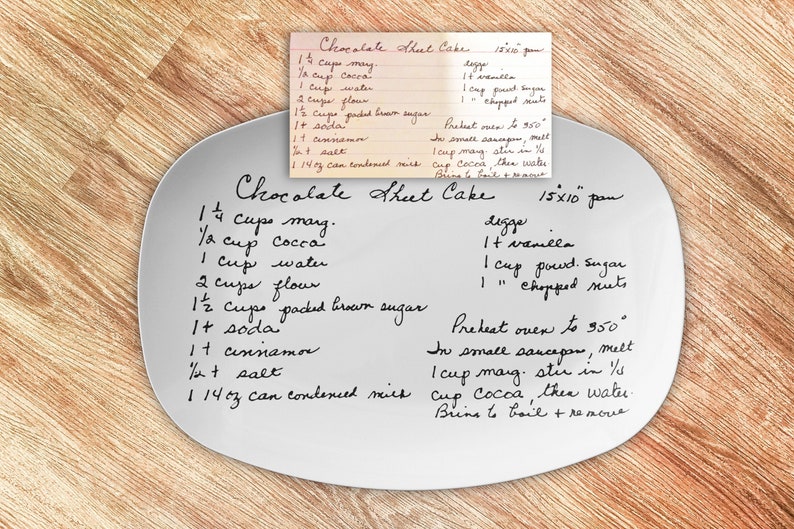 Chocolate Sheet Cake 15"x10" pan
1 1/4 cups marg.
1/2 cup cocoa
1 cup water
2 cups flour
1 1/2 cups packed brown sugar
1 t soda
1 t cinnamon
1/2 t salt
1 14 oz can condensed milk
2 eggs
1 t vanilla
1 cup powd. sugar
1 " chopped nuts
Preheat oven to 350°
In small saucepan, melt
1 cup marg. stir in 1/3
cup cocoa, then water.
Bring to boil + remove
Chocolate Sheet Cake 15"x10" pan
1 1/4 cups marg.
1/2 cup cocoa
1 cup water
2 cups flour
1 1/2 cups packed brown sugar
1 t soda
1 t cinnamon
1/2 t salt
1 14 oz can condensed milk
2 eggs
1 t vanilla
1 cup powd. sugar
1 " chopped nuts
Preheat oven to 350°
In small saucepan, melt
1 cup marg. stir in 1/3
cup cocoa, then water.
Bring to boil + remove